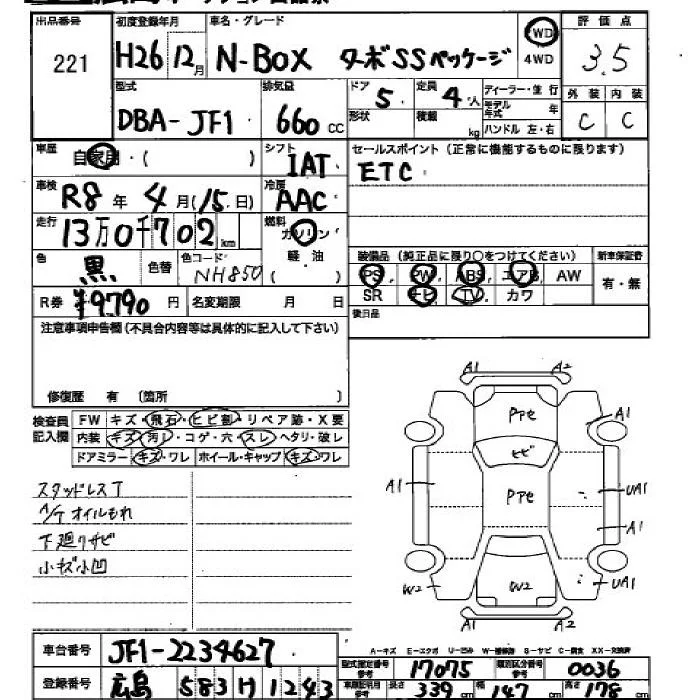 出品番号 初度登録年月 車名・グレード 評価点
221 H26 12月 N-BOX ターボSSパッケージ 2WD 4WD 3.5
型式 排気量 ドア 定員 ディーラー・並行 外装 内装
DBA-JF1 660cc 5. 4人 モデル年式 年 C C
形状 積載 kg ハンドル 左・右
車歴 自家用・( ) シフト IAT セールスポイント (正常に機能するものに限ります)
ETC
車検 R8年 4月(15日) 冷房 AAC
走行 13万0千702km 燃料 ガソリン 軽・油 ( )
色 黒 色替 色コード NH850
装備品 (純正品に限り○をつけてください) 新車保証書
PS. PW. ABS. エアB. AW 有・無
SR ナビ. TV. カワ
R券 ¥9790円 名変期限 月 日 後日品
注意事項申告欄 (不具合内容等は具体的に記入して下さい)
修復歴 有 〔箇所 〕
検査員記入欄 FW キズ・飛石・ヒビ割・リペア跡・X要
内装 キズ・汚レ・コゲ・穴・スレ・ヘタリ・破レ
ドアミラー キズ・ワレ ホイール・キャップ キズ・ワレ
スタッドレスT
A/Tオイルもれ
下廻りサビ
小キズ小凹
A1 A2
PPe A1
ヒビ
A1 PPe UA1
A1
W2 W2 UA1
A2
A-キズ E-エクボ U-凹み W-補修跡 S-サビ C-腐食 XX-交換済
車台番号 JF1-2234627 型式指定番号 参考 17075 類別区分番号 参考 0036
登録番号 広島 583 H 1243 車検証明用 参考 長さ 339cm 幅 147cm 高さ 178cm